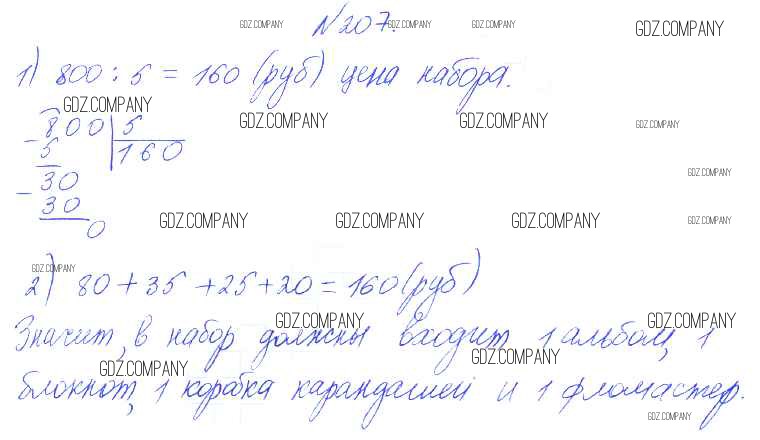 №207.
1) 800 : 5 = 160 (руб) цена набора.
- 800 | 5
5 | 160
- 30
30
0
2) 80 + 35 + 25 + 20 = 160 (руб)
Значит, в набор должны входит 1 альбом, 1
блокнот, 1 коробка карандашей и 1 фломастер.
GDZ.COMPANY GDZ.COMPANY GDZ.COMPANY GDZ.COMPANY
GDZ.COMPANY GDZ.COMPANY GDZ.COMPANY GDZ.COMPANY
GDZ.COMPANY
GDZ.COMPANY GDZ.COMPANY GDZ.COMPANY GDZ.COMPANY
GDZ.COMPANY
GDZ.COMPANY GDZ.COMPANY
GDZ.COMPANY GDZ.COMPANY
GDZ.COMPANY